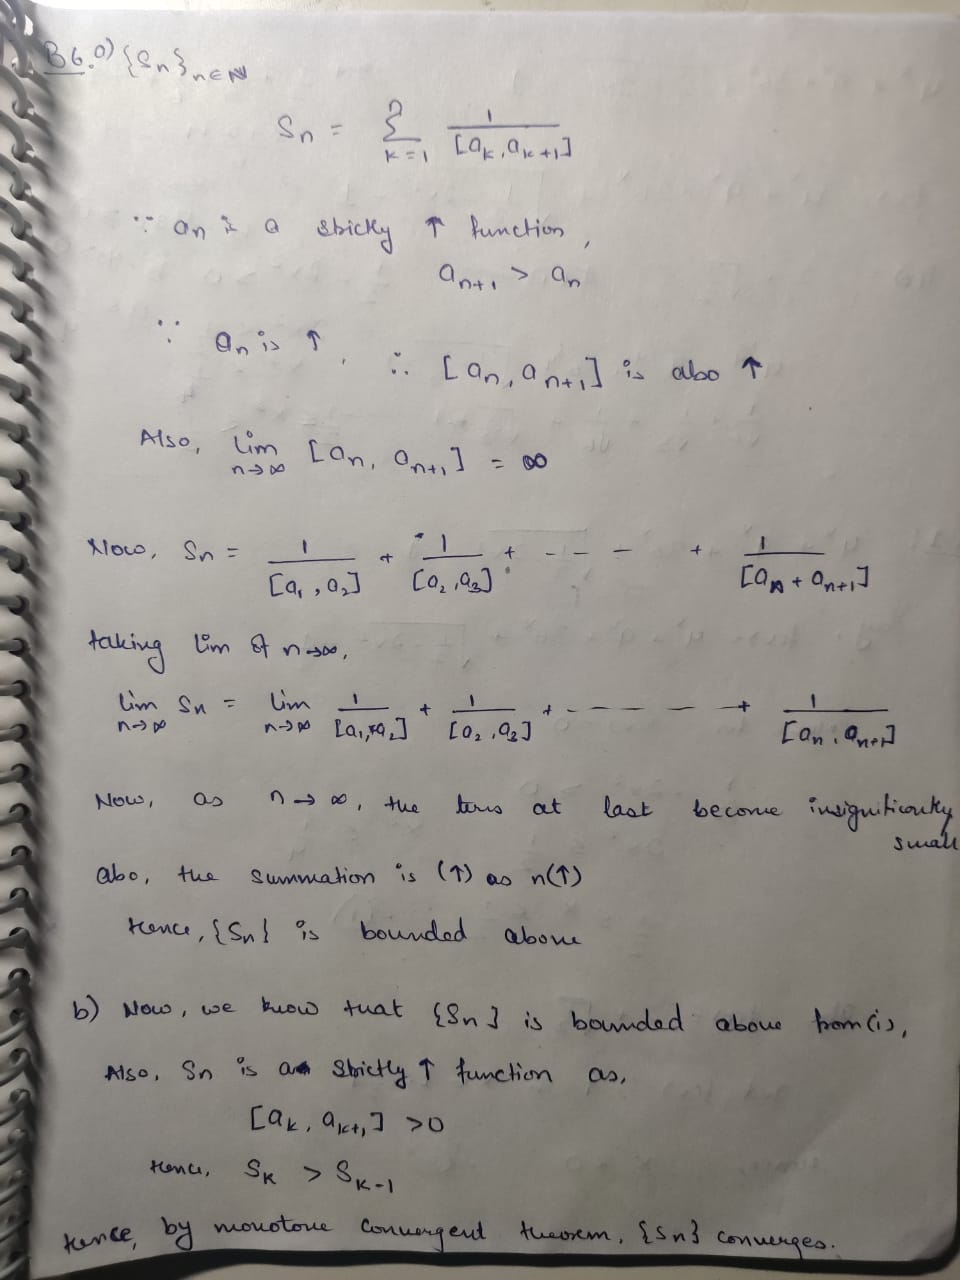 B6.a) {Sn}n∈N
Sn = Σ k=1 1/[ak, ak+1]
∵ an is a strictly ↑ function,
an+1 > an
∵ an is ↑, ∴ [an, an+1] is also ↑
Also, lim n→∞ [an, an+1] = ∞
Now, Sn = 1/[a1, a2] + 1/[a2, a3] + - - - + 1/[an + an+1]
taking lim of n→∞,
lim n→∞ Sn = lim n→∞ 1/[a1, a2] + 1/[a2, a3] + - - - - + 1/[an, an+1]
Now, as n→∞, the terms at last become insignificantly
small
also, the summation is (↑) as n(↑)
Hence, {Sn} is bounded above
b) Now, we know that {Sn} is bounded above from (i),
Also, Sn is a strictly ↑ function as,
[ak, ak+1] >0
Hence, SK > SK-1
Hence, by monotone convergent theorem, {Sn} converges.